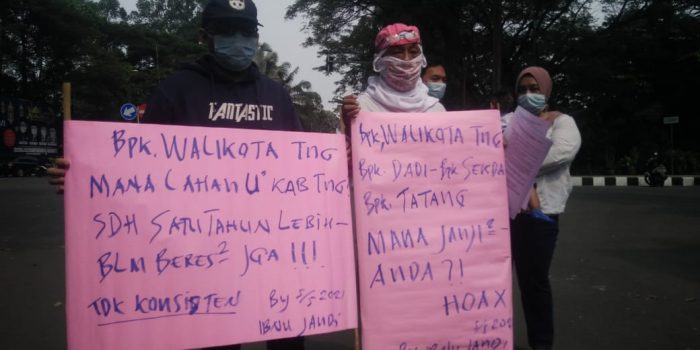 FANTASTIC
BPK. WALIKOTA TNG
MANA LAHAN U" KAB TNG.
SDH SATU TAHUN LEBIH –
BLM BERES² JGA !!!
TDK KONSISTEN By 5/5 2021
IBNU JANDI
BPK, WALIKOTA TNG
BPK. DADI – BPK SEKDA
BPK. TATANG
MANA JANJI² –
ANDA ?!
HOAX
5/5 2021
By IBNU JANDI